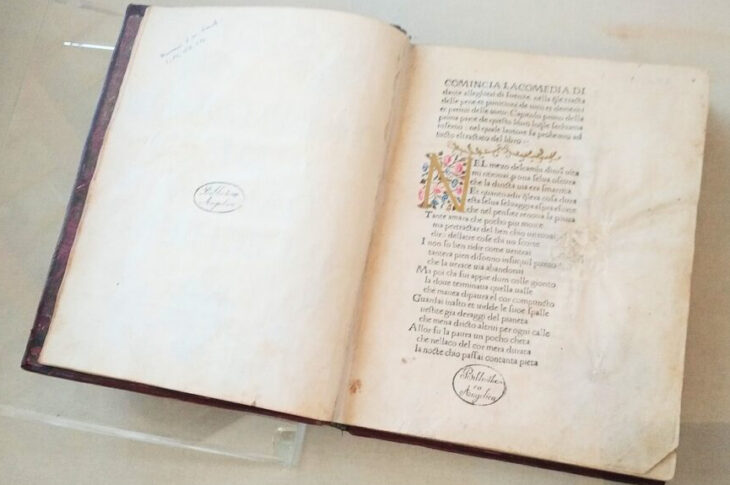 Bibliotheca
Angelica
COMINCIA LACOMEDIA DI
dante alleghieri di fiorenze nella qle tracta
delle pene et punitioni de uitii et demeriti
et premii delle uirtu: Capitolo primo della
prima parte de questo libro loqle sechiama
inferno: nel quale lautore fa prohemio ad
tucto eltractato del libro:
NEL mezo delcamin dinrã uita
mi ritrouai puna selua oscura
che la diricta uia era smarrita
Et quanto adir qlera cosa dura
esta selua seluaggia aspra eforte
che nel pensier renoua la paura
Tante amara che pocho piu morte
ma pertractar del ben chio uitrouai
diro dellatre cose chi uo scorte
I non so ben ridir come uentrai
tantera pien disonno insuquel punto
che la uerace uia abandonai
Ma poi chi fui appie dum colle gionto
la doue terminaua quella ualle
che mauea dipaura el cor compuncto
Guardai inalto et uidde le suoe spalle
uestite gia deraggi del pianeta
che mena dricto altrui per ogni calle
Allor fu la paura un pocho cheta
che nellaco del cor mera durata
la nocte chio passai contanta pieta
Bibliothe
ca
Angelica